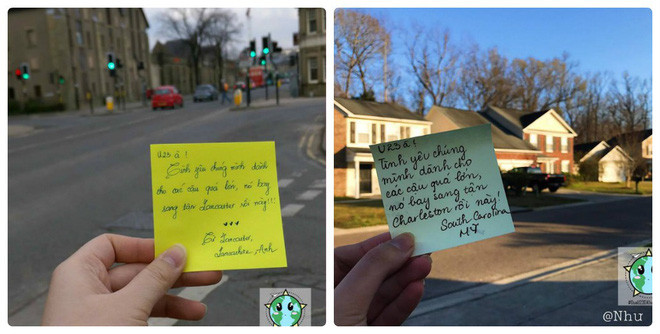 U23 à !
Tình yêu chúng mình dành
cho các cậu quá lớn, nó bay
sang tận Lancaster rồi này!!!
Từ Lancaster,
Lancashire, Anh
U23 à !
Tình yêu chúng
mình dành cho
các cậu quá lớn,
nó bay sang tận
Charleston rồi này!
South Carolina
Mỹ
@Nhu